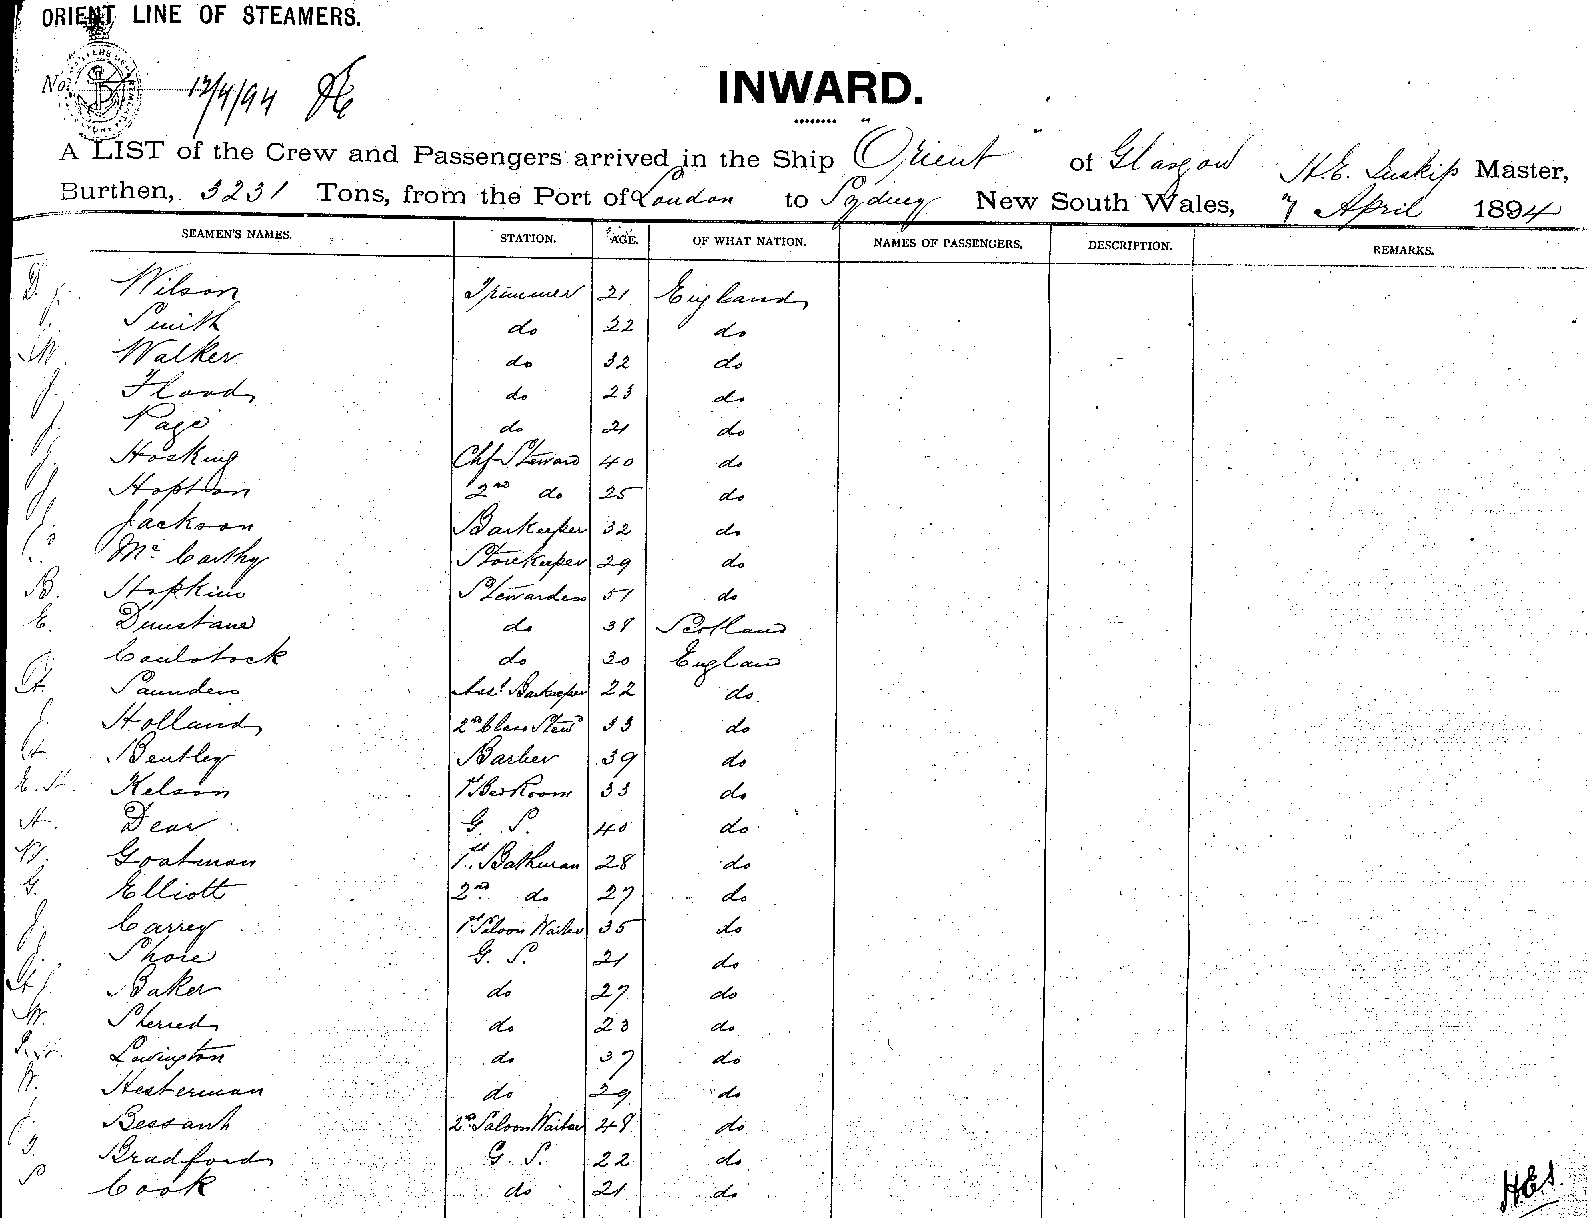 ORIENT LINE OF STEAMERS.
No. 12/4/94
INWARD.
A LIST of the Crew and Passengers arrived in the Ship "Orient" of Glasgow H.E. Inskip Master,
Burthen, 3231 Tons, from the Port of London to Sydney New South Wales, 7 April 1894
SEAMEN'S NAMES. STATION. AGE. OF WHAT NATION. NAMES OF PASSENGERS. DESCRIPTION. REMARKS.
D. J. Wilson Trimmer 21 England
Smith do 22 do
W. Walker do 32 do
J. Flood do 23 do
J. Page do 21 do
J. Hosking Chf Steward 40 do
J. Hopton 2nd do 25 do
J. Jackson Barkeeper 32 do
McCarthy Storekeeper 29 do
B. Hopkins Stewardess 51 do
E. Dunstane do 38 Scotland
Coulstock do 30 England
H. Saunders Asst Barkeeper 22 do
J. Holland 2nd Class Stewd 33 do
H. Bentley Barber 39 do
E. H. Kelson 1st Bed Room 33 do
H. Dear G. S. 40 do
W. Goatman 1st Bathman 28 do
G. Elliott 2nd do 27 do
J. Carrey 1st Saloon Waiter 35 do
J. Shore G. S. 21 do
H J. Baker do 27 do
W. Sherred do 23 do
Lovington do 37 do
W. Hesterman do 29 do
J. Bessant 2nd Saloon Waiter 48 do
J. Bradford G. S. 22 do
S Cook do 21 do
HEI.